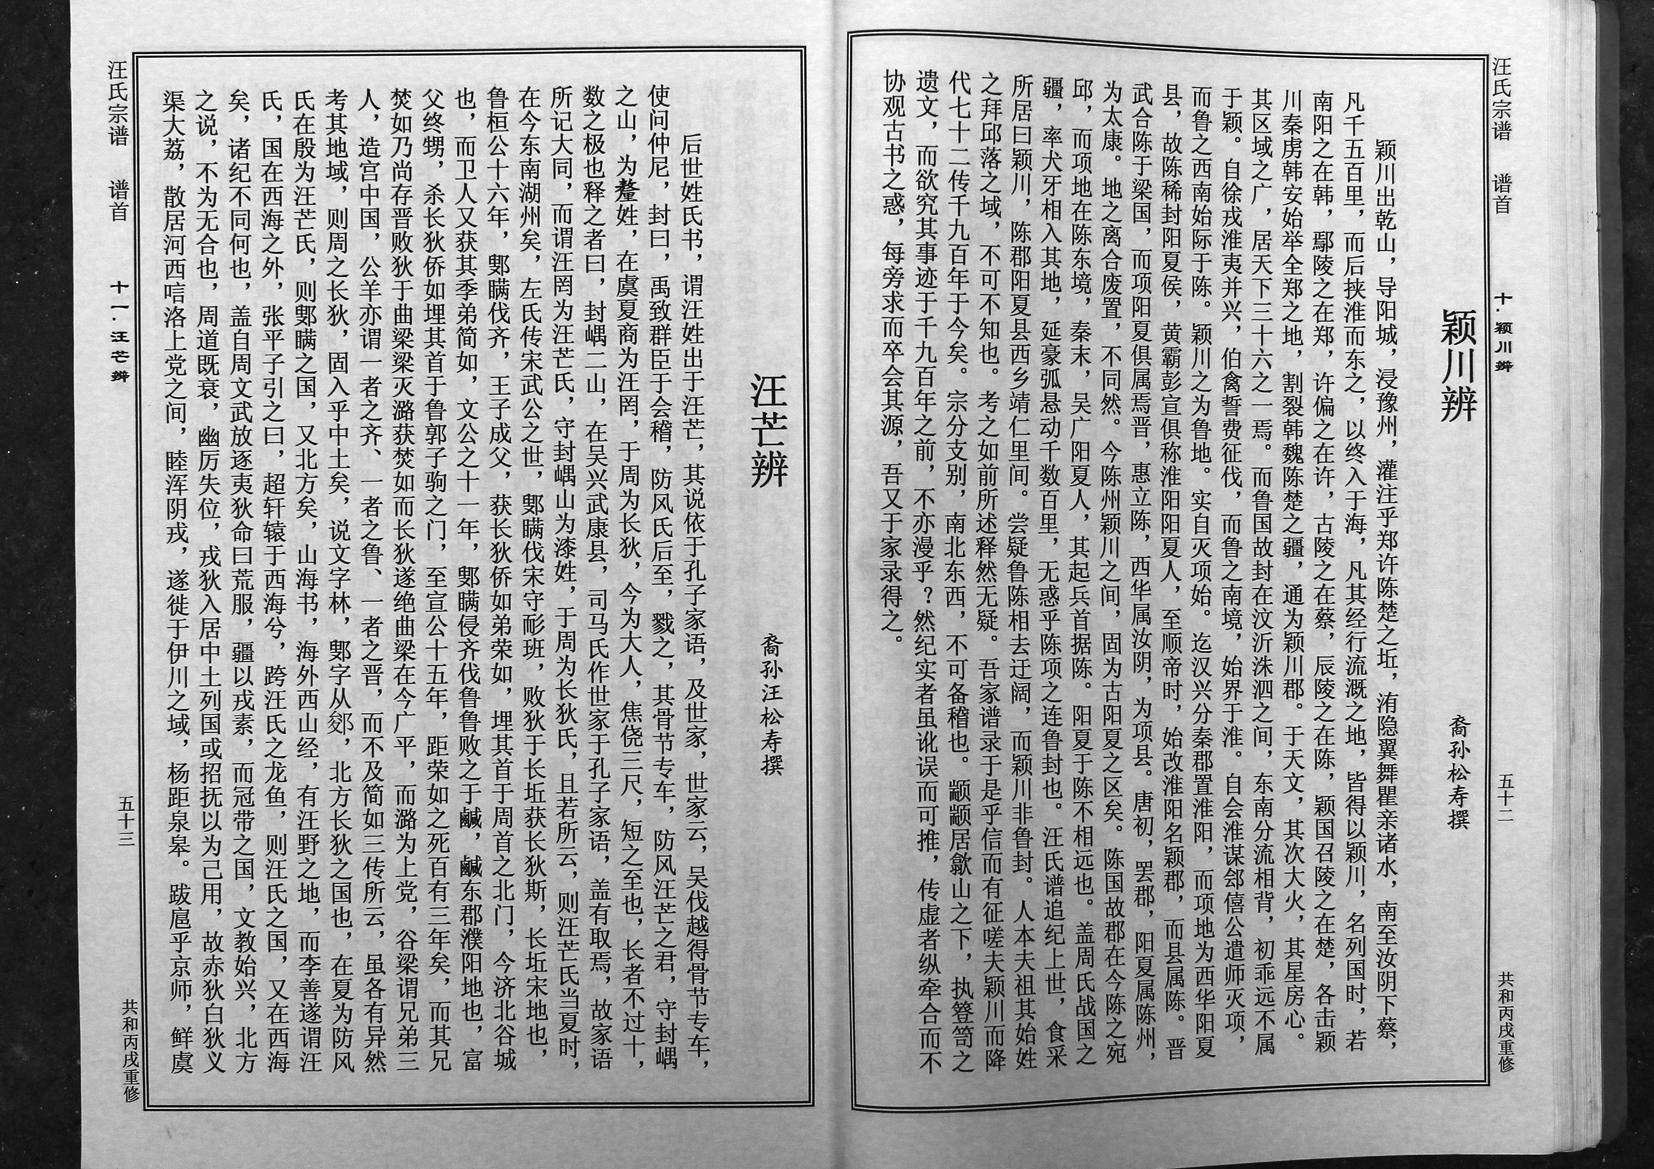 汪氏宗谱 谱首 十·颖川辨 五十二 共和丙戌重修
颖川辨
裔孙松寿撰
颖川出乾山，导阳城，浸豫州，灌注乎郑许陈楚之坵，洧隐翼舞瞿亲诸水，南至汝阴下蔡，
凡千五百里，而后挟淮而东之，以终入于海，凡其经行流溉之地，皆得以颖川，名列国时，若
南阳之在韩，鄢陵之在郑，许偏之在许，古陵之在蔡，辰陵之在陈，颖国召陵之在楚，各击颖
川秦虏韩安始举全郑之地，割裂韩魏陈楚之疆，通为颖川郡。于天文，其次大火，其星房心。
其区域之广，居天下三十六之一焉。而鲁国故封在汶沂洙泗之间，东南分流相背，初乖远不属
于颖。自徐戎淮夷并兴，伯禽誓费征伐，而鲁之南境，始界于淮。自会淮谋郐僖公遣师灭项，
而鲁之西南始际于陈。颖川之为鲁地。实自灭项始。迄汉兴分秦郡置淮阳，而项地为西华阳夏
县，故陈稀封阳夏侯，黄霸彭宣俱称淮阳阳夏人，至顺帝时，始改淮阳名颖郡，而县属陈。晋
武合陈于梁国，而项阳夏俱属焉晋，惠立陈，西华属汝阴，为项县。唐初，罢郡，阳夏属陈州，
为太康。地之离合废置，不同然。今陈州颖川之间，固为古阳夏之区矣。陈国故郡在今陈之宛
邱，而项地在陈东境，秦末，吴广阳夏人，其起兵首据陈。阳夏于陈不相远也。盖周氏战国之
疆，率犬牙相入其地，延豪弧悬动千数百里，无惑乎陈项之连鲁封也。汪氏谱追纪上世，食采
所居曰颖川，陈郡阳夏县西乡靖仁里间。尝疑鲁陈相去迂阔，而颖川非鲁封。人本夫祖其始姓
之拜邱落之域，不可不知也。考之如前所述释然无疑。吾家谱录于是乎信而有征嗟夫颖川而降
代七十二传千九百年于今矣。宗分支别，南北东西，不可备稽也。颛颛居歙山之下，执簦笥之
遗文，而欲究其事迹于千九百年之前，不亦漫乎？然纪实者虽讹误而可推，传虚者纵牵合而不
协观古书之惑，每旁求而卒会其源，吾又于家录得之。
汪芒辨
裔孙汪松寿撰
后世姓氏书，谓汪姓出于汪芒，其说依于孔子家语，及世家，世家云，吴伐越得骨节专车，
使问仲尼，封曰，禹致群臣于会稽，防风氏后至，戮之，其骨节专车，防风汪芒之君，守封嵎
之山，为漦姓，在虞夏商为汪罔，于周为长狄，今为大人，焦侥三尺，短之至也，长者不过十，
数之极也释之者曰，封嵎二山，在吴兴武康县，司马氏作世家于孔子家语，盖有取焉，故家语
所记大同，而谓汪罔为汪芒氏，守封嵎山为漆姓，于周为长狄氏，且若所云，则汪芒氏当夏时，
在今东南湖州矣，左氏传宋武公之世，鄋瞒伐宋守耏班，败狄于长坵获长狄斯，长坵宋地也，
鲁桓公十六年，鄋瞒伐齐，王子成父，获长狄侨如弟荣如，埋其首于周首之北门，今济北谷城
也，而卫人又获其季弟简如，文公之十一年，鄋瞒侵齐伐鲁鲁败之于鹹，鹹东郡濮阳地也，富
父终甥，杀长狄侨如埋其首于鲁郭子驹之门，至宣公十五年，距荣如之死百有三年矣，而其兄
焚如乃尚存晋败狄于曲梁梁灭潞获焚如而长狄遂绝曲梁在今广平，而潞为上党，谷梁谓兄弟三
人，造宫中国，公羊亦谓一者之齐、一者之鲁、一者之晋，而不及简如三传所云，虽各有异然
考其地域，则周之长狄，固入乎中土矣，说文字林，鄋字从郊，北方长狄之国也，在夏为防风
氏在殷为汪芒氏，则鄋瞒之国，又北方矣，山海书，海外西山经，有汪野之地，而李善遂谓汪
氏，国在西海之外，张平子引之曰，超轩辕于西海兮，跨汪氏之龙鱼，则汪氏之国，又在西海
矣，诸纪不同何也，盖自周文武放逐夷狄命曰荒服，疆以戎素，而冠带之国，文教始兴，北方
之说，不为无合也，周道既衰，幽厉失位，戎狄入居中土列国或招抚以为己用，故赤狄白狄义
渠大荔，散居河西唁洛上党之间，睦浑阴戎，遂徙于伊川之域，杨距泉皋。跋扈乎京师，鲜虞
汪氏宗谱 谱首 十一·汪芒辨 五十三 共和丙戌重修